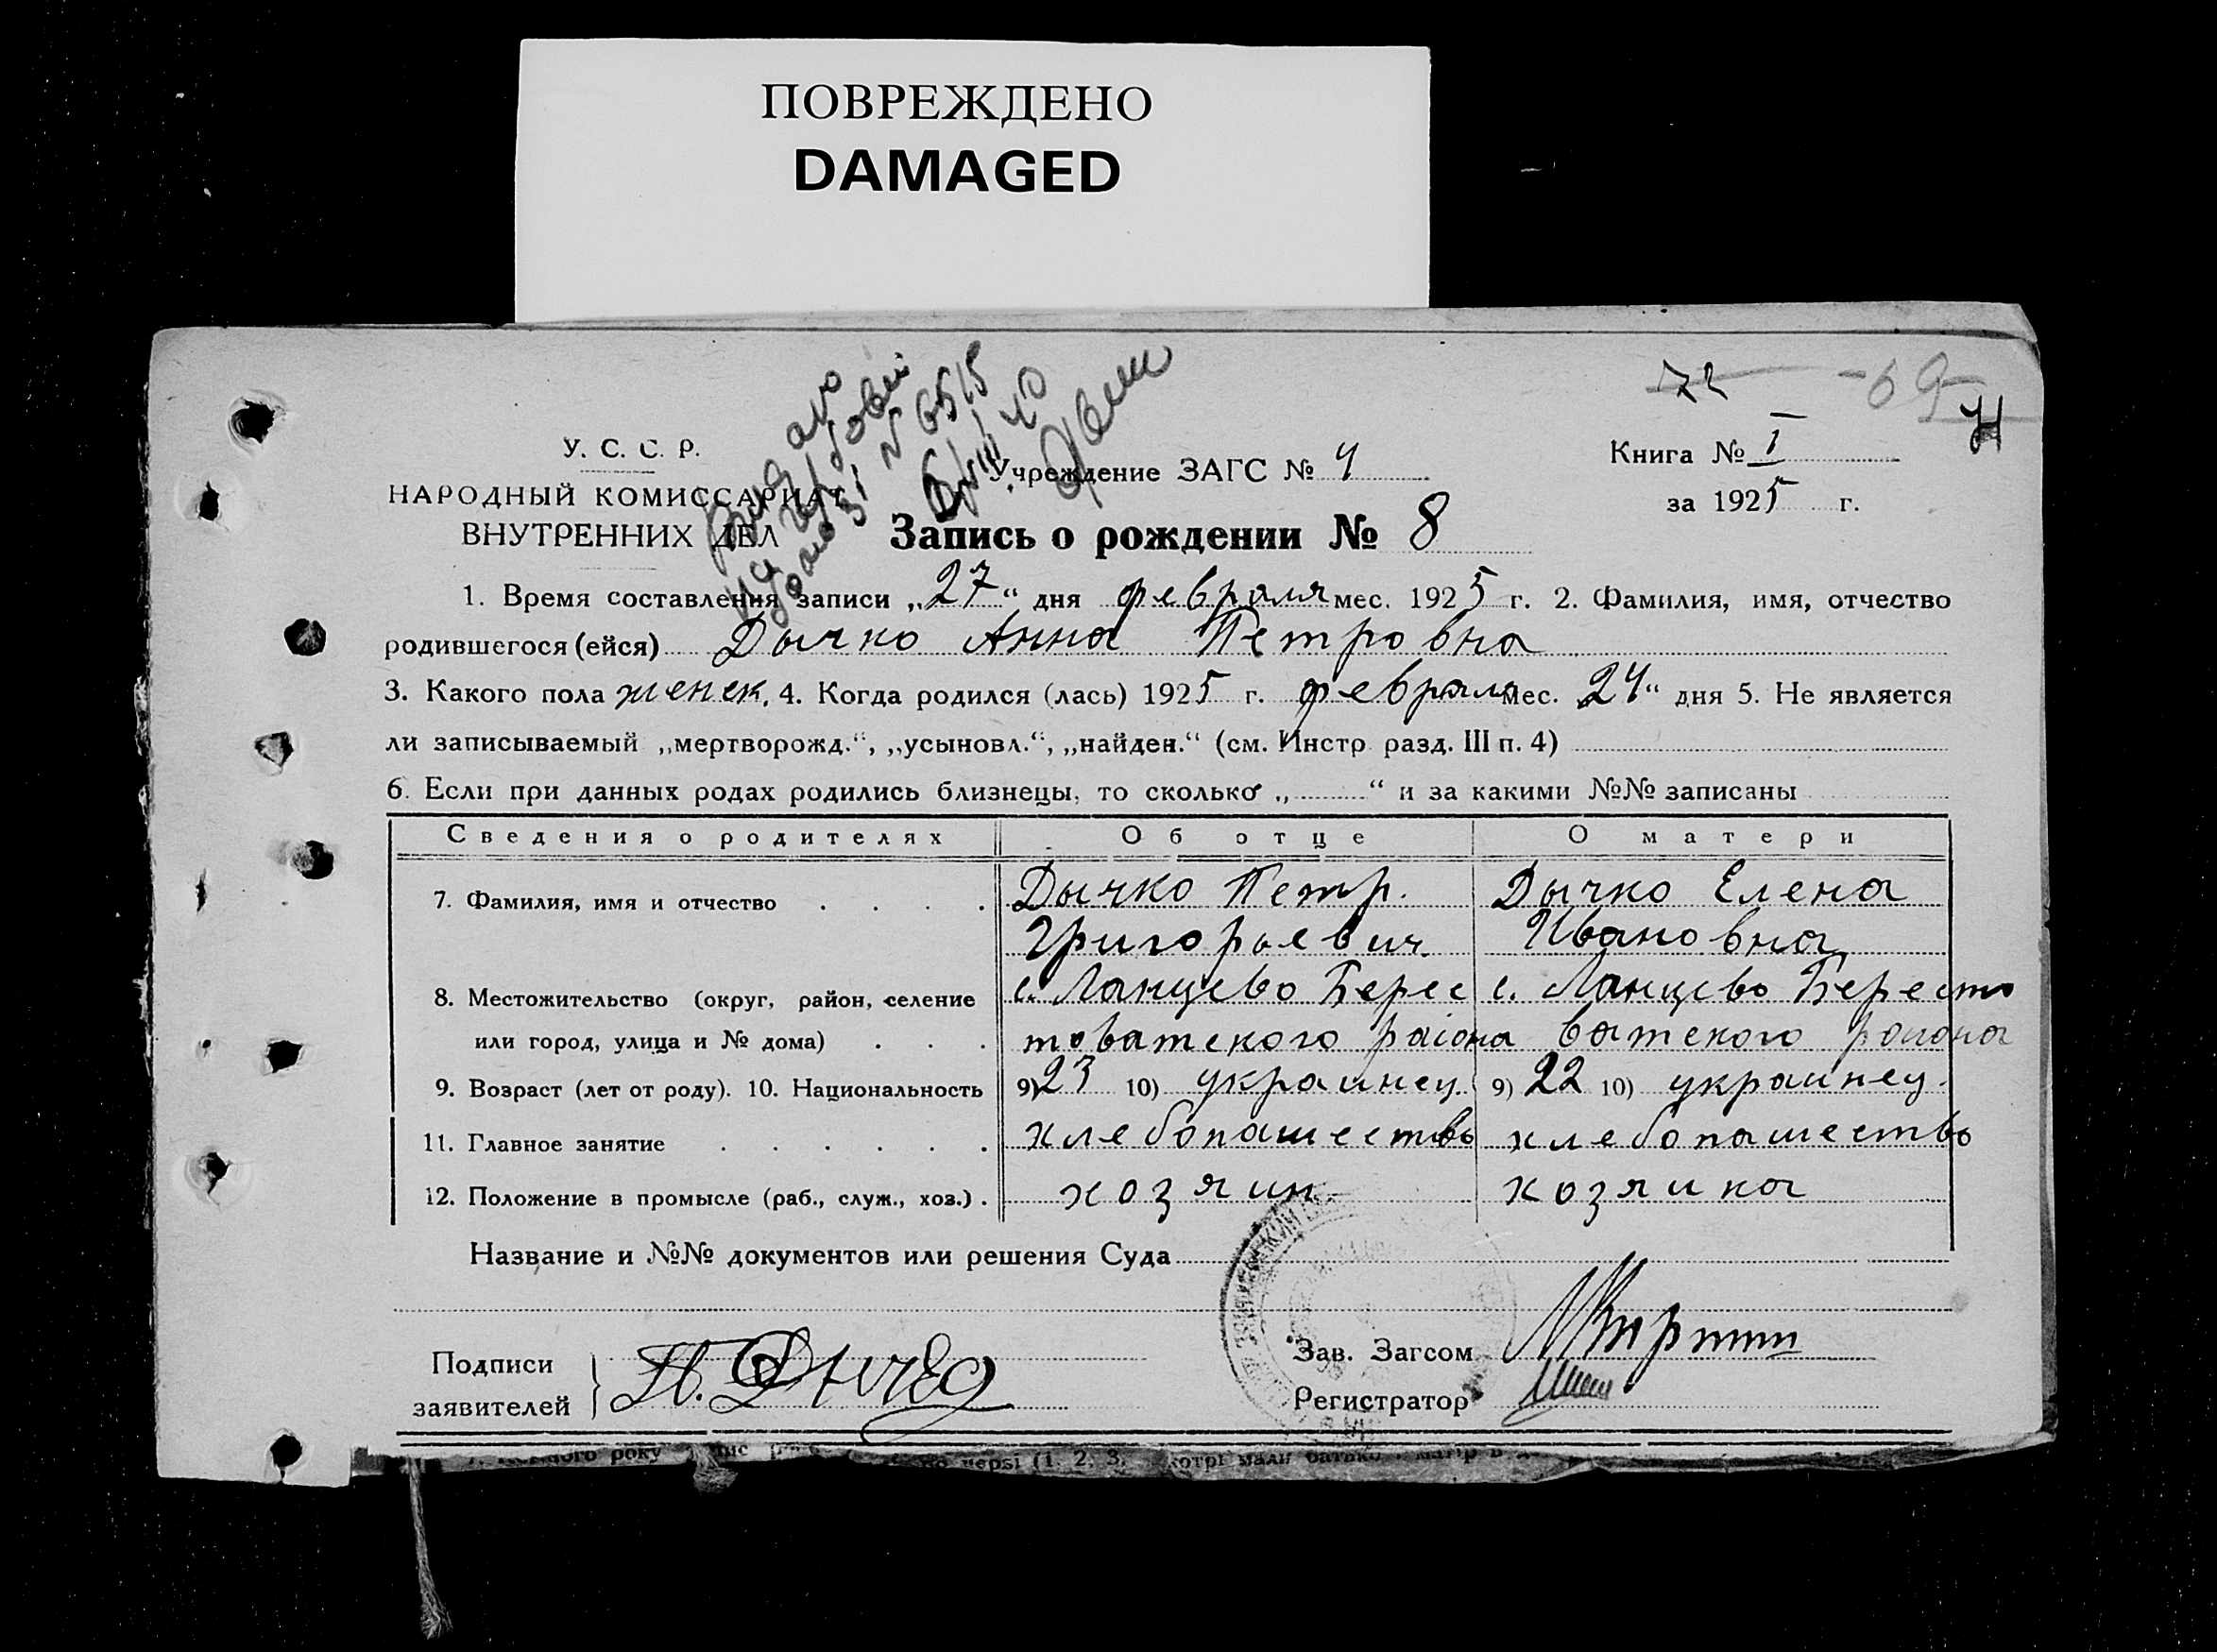 ПОВРЕЖДЕНО
DAMAGED
72 -69-
У. С. С. Р.
НАРОДНЫЙ КОМИССАРИАТ
ВНУТРЕННИХ ДЕЛ
N 6515
Учреждение ЗАГС № 4
Книга № I
за 1925 г.
Запись о рождении № 8
1. Время составления записи „27“ дня февраля мес. 1925 г. 2. Фамилия, имя, отчество
родившегося (ейся) Дычко Анна Петровна
3. Какого пола женск. 4. Когда родился (лась) 1925 г. февраля мес. 24“ дня 5. Не является
ли записываемый „мертворожд.“, „усыновл.“, „найден.“ (см. Инстр. разд. III п. 4)
6. Если при данных родах родились близнецы, то сколько „ “ и за какими №№ записаны
Сведения о родителях Об отце О матери
7. Фамилия, имя и отчество . . . . Дычко Петр. Дычко Елена
Григорьевич. Ивановна
8. Местожительство (округ, район, селение с. Ланцево Берес с. Ланцево Бересто
или город, улица и № дома) . . . товатского района ватского района
9. Возраст (лет от роду). 10. Национальность 9) 23 10) украинец. 9) 22 10) украинец.
11. Главное занятие . . . . . . хлебопашество хлебопашество
12. Положение в промысле (раб., служ., хоз.) . хозяин хозяйка
Название и №№ документов или решения Суда
Подписи
заявителей
Зав. Загсом
Регистратор